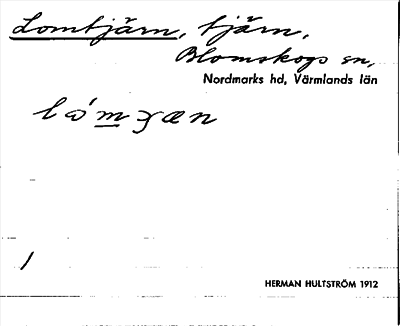 Lomtjärn, tjärn,
Blomskogs sn,
Nordmarks hd, Värmlands län
/
HERMAN HULTSTRÖM 1912